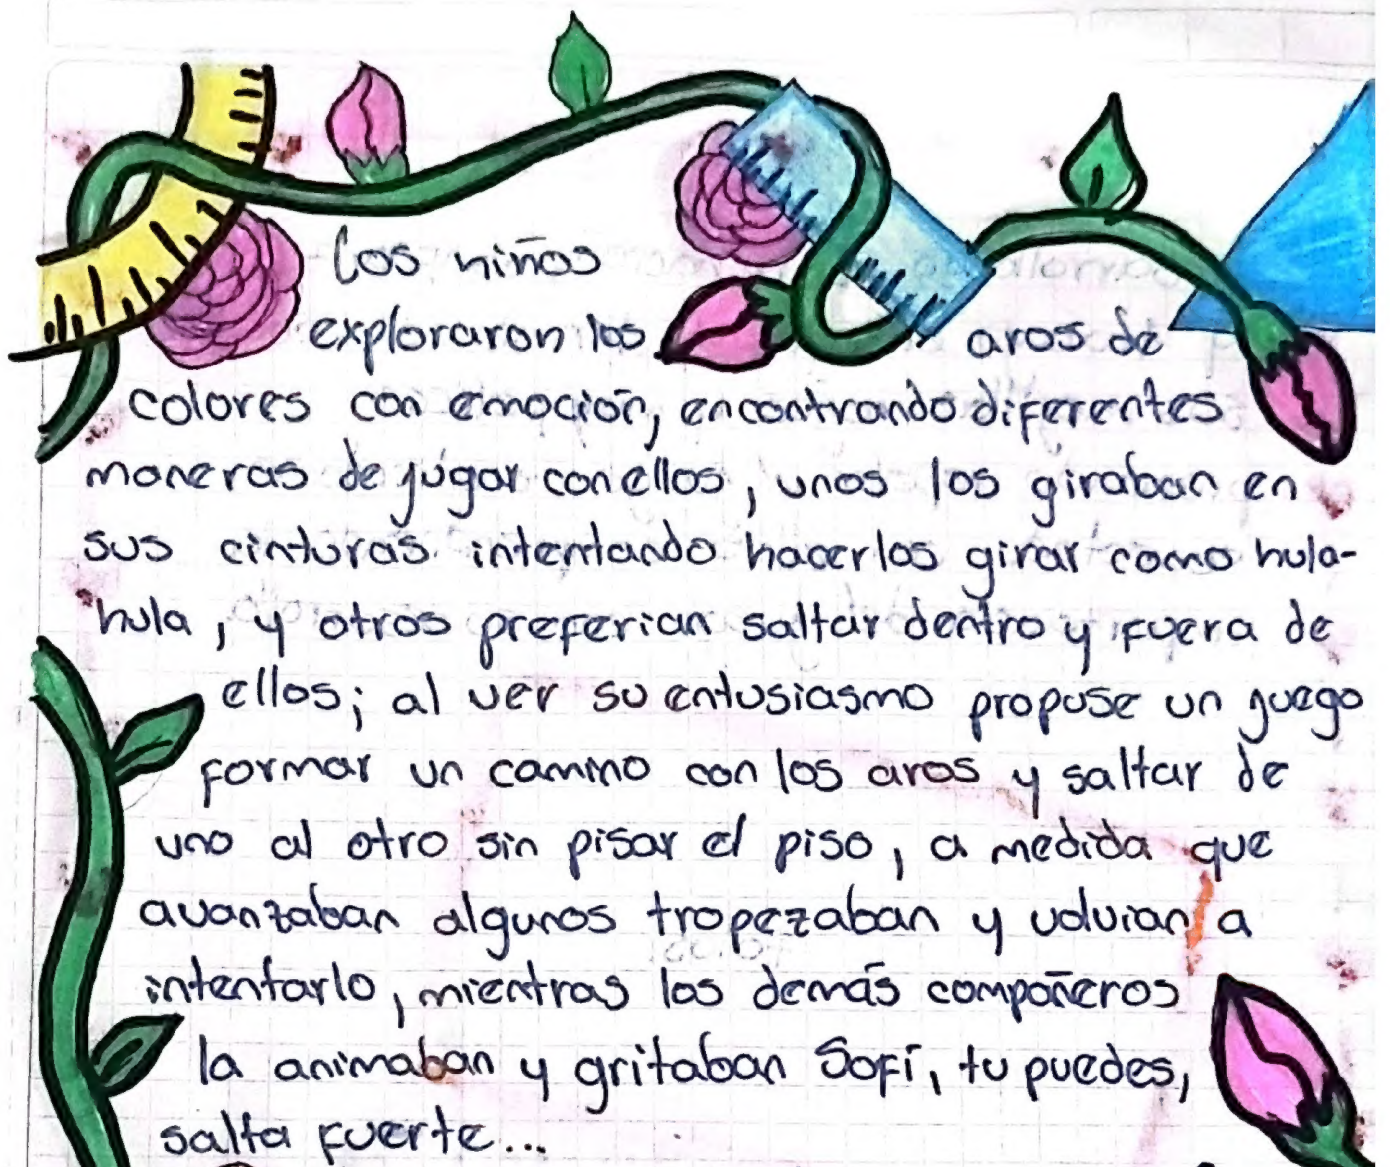 los niños
exploraron los aros de
colores con emoción, encontrando diferentes
maneras de jugar con ellos, unos los giraban en
sus cinturas intentando hacerlos girar como hula-
hula, y otros preferian saltar dentro y fuera de
ellos; al ver su entusiasmo propuse un juego
formar un camino con los aros y saltar de
uno al otro sin pisar el piso, a medida que
avanzaban algunos tropezaban y volvian a
intentarlo, mientras los demás compañeros
la animaban y gritaban Sofí, tu puedes,
salta fuerte...